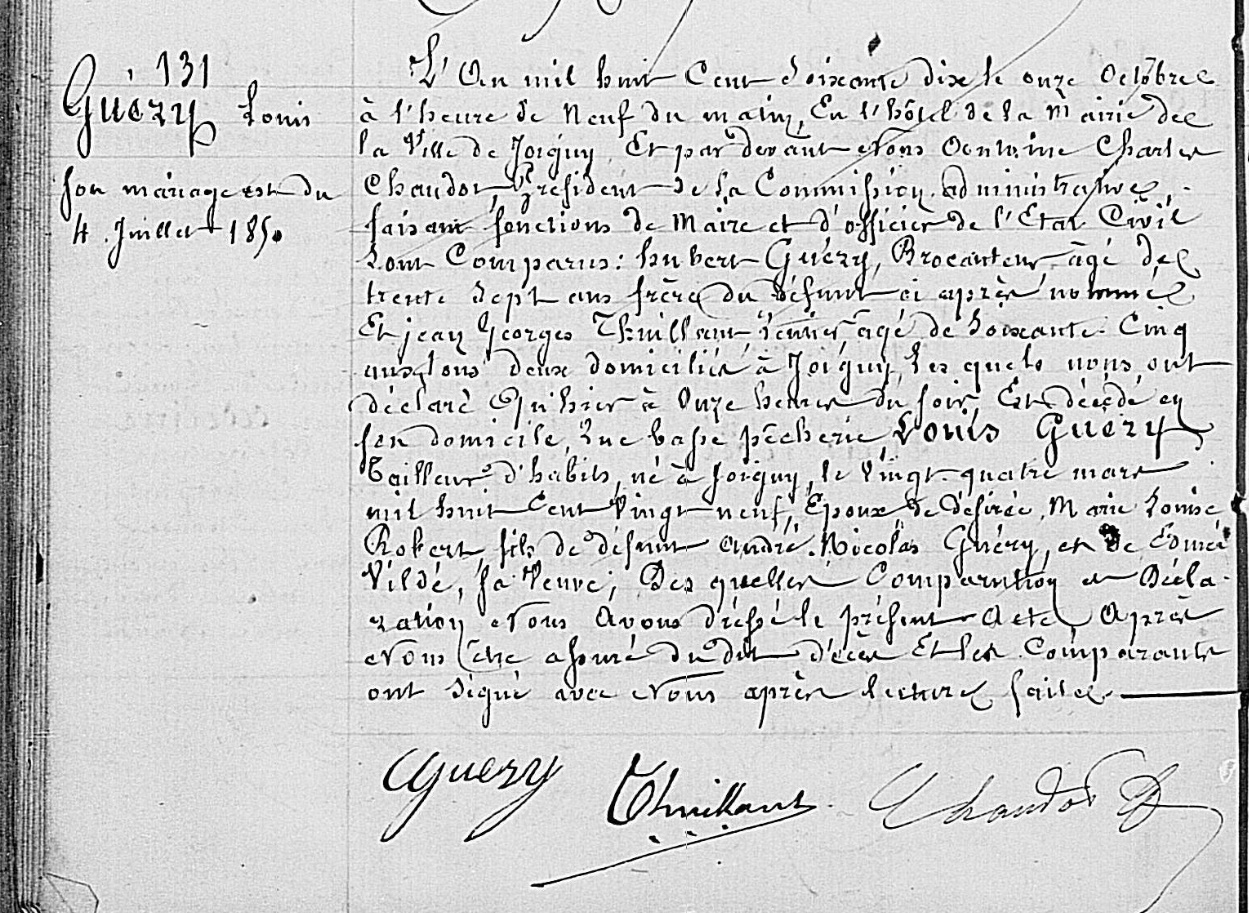 131
Guézy Louis
son mariage est du
4 Juillet 1850
L'An mil huit Cent Soixante dix le onze Octobre
à l'heure de Neuf du matin, En l'hôtel de la Mairie de
la Ville de Joigny, Et par devant Nous Antoine Charles
Chaudot, Président de la Commission administrative,
faisant fonctions de Maire et d'officier de l'Etat Civil
Sont Comparus: hubert Guézy, Brocanteur, âgé de
trente Sept ans frère du défunt ci après nommé
Et jean Georges Thuillant, rentier, âgé de Soixante Cinq
ans, tous deux domiciliés à Joigny, les quels nous ont
déclaré Qu'hier à Onze heures du soir Est décédé en
son domicile, Rue basse pêcherie Louis Guézy
Tailleur d'habits, né à Joigny, le Vingt-quatre mars
mil huit Cent Vingt neuf, Epoux de désirée, Marie Louise
Robert, fils de défunt André Nicolas Guézy, et de Edmée
Vildé, sa Veuve; Des quelles Comparution et Décla-
ration Nous Avons dressé le présent Acte Après
Nous être assuré du dit décès Et les Comparants
ont Signé avec Nous après lecture faite.
Guezy Thuillant Chaudot